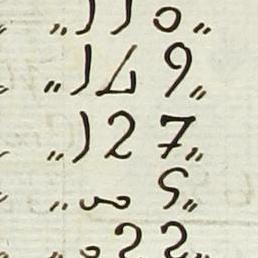 „110„
„149„
„127„
„005„
„022„